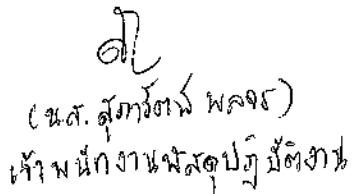 (น.ส. สุภารัตน์ พลจร)
เจ้าพนักงานพัสดุปฏิบัติงาน